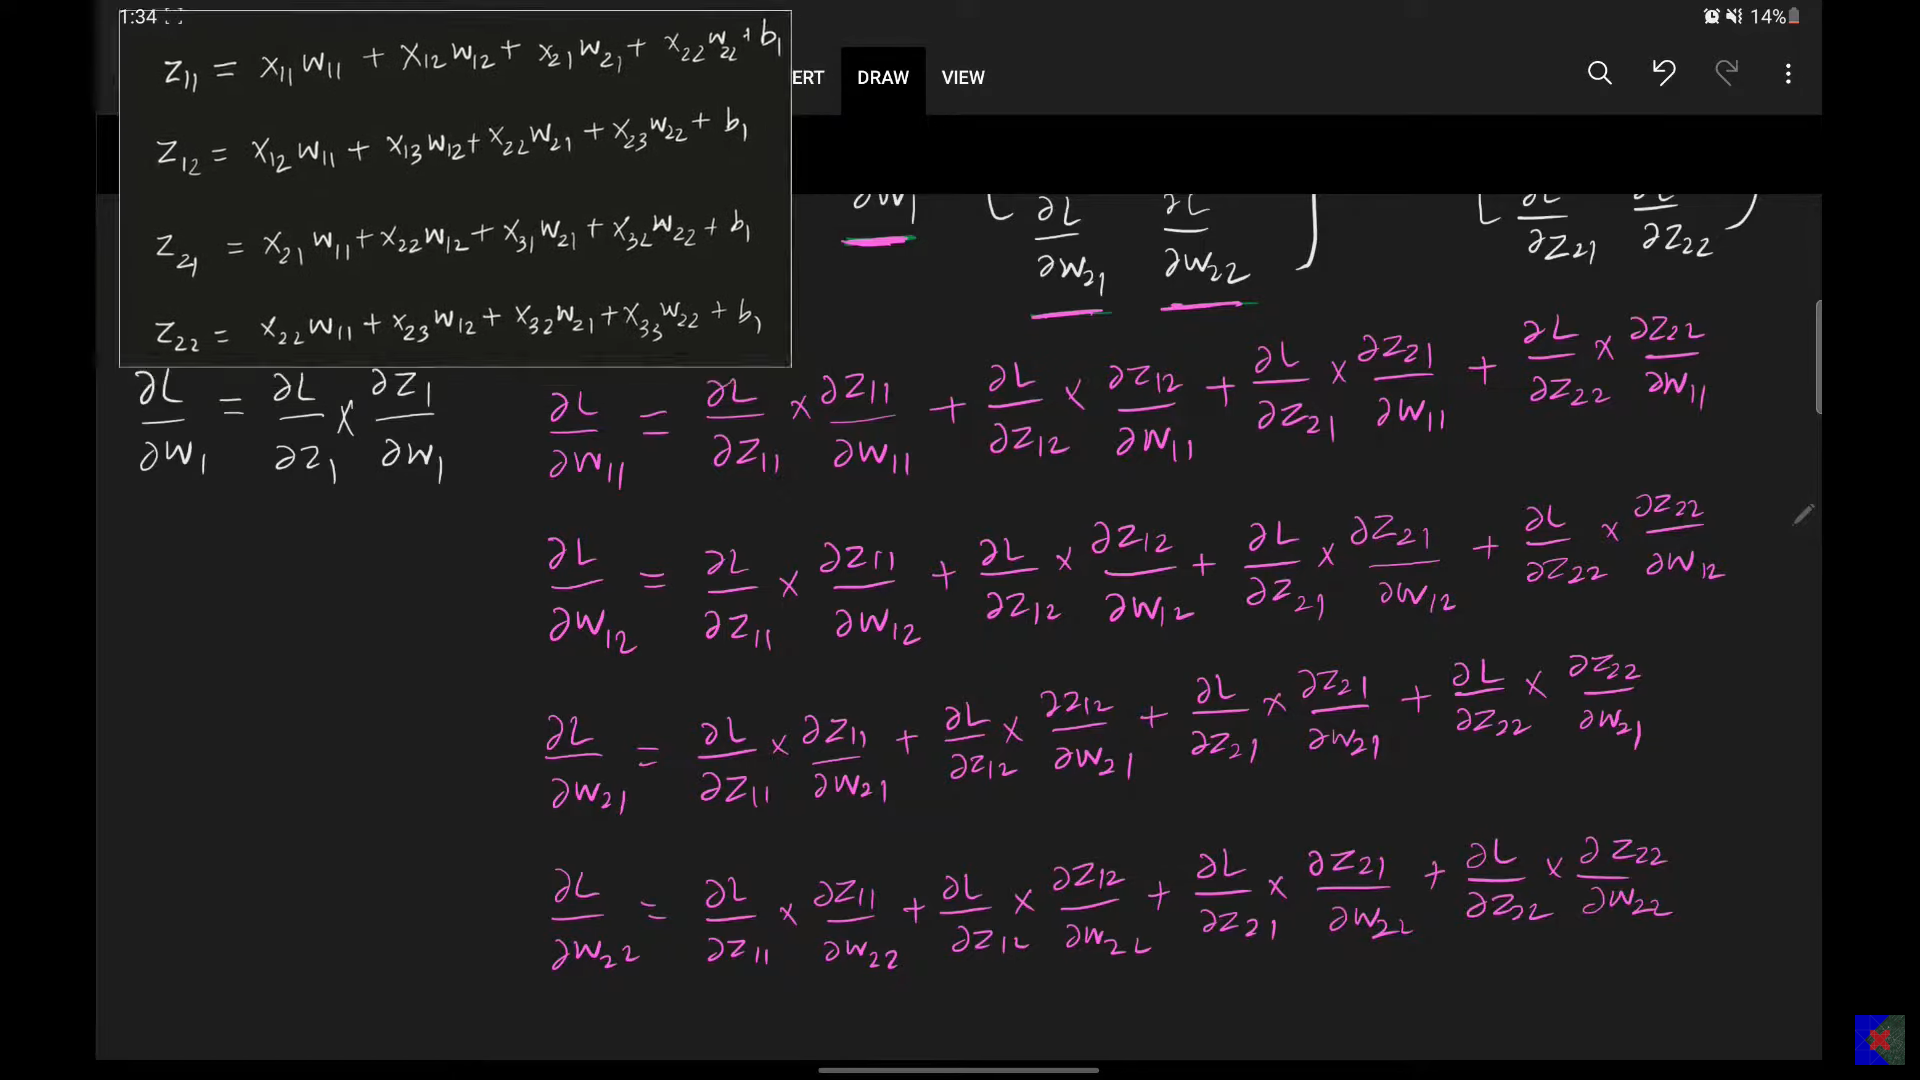 1:34
14%
ERT DRAW VIEW
z11 = x11 w11 + x12 w12 + x21 w21 + x22 w22 + b1
z12 = x12 w11 + x13 w12 + x22 w21 + x23 w22 + b1
z21 = x21 w11 + x22 w12 + x31 w21 + x32 w22 + b1
z22 = x22 w11 + x23 w12 + x32 w21 + x33 w22 + b1
∂w1 [ ∂L/∂w21 ∂L/∂w22 ] [ ∂L/∂z21 ∂L/∂z22 ]
∂L/∂w1 = ∂L/∂z1 × ∂z1/∂w1
∂L/∂w11 = ∂L/∂z11 × ∂z11/∂w11 + ∂L/∂z12 × ∂z12/∂w11 + ∂L/∂z21 × ∂z21/∂w11 + ∂L/∂z22 × ∂z22/∂w11
∂L/∂w12 = ∂L/∂z11 × ∂z11/∂w12 + ∂L/∂z12 × ∂z12/∂w12 + ∂L/∂z21 × ∂z21/∂w12 + ∂L/∂z22 × ∂z22/∂w12
∂L/∂w21 = ∂L/∂z11 × ∂z11/∂w21 + ∂L/∂z12 × ∂z12/∂w21 + ∂L/∂z21 × ∂z21/∂w21 + ∂L/∂z22 × ∂z22/∂w21
∂L/∂w22 = ∂L/∂z11 × ∂z11/∂w22 + ∂L/∂z12 × ∂z12/∂w22 + ∂L/∂z21 × ∂z21/∂w22 + ∂L/∂z22 × ∂z22/∂w22